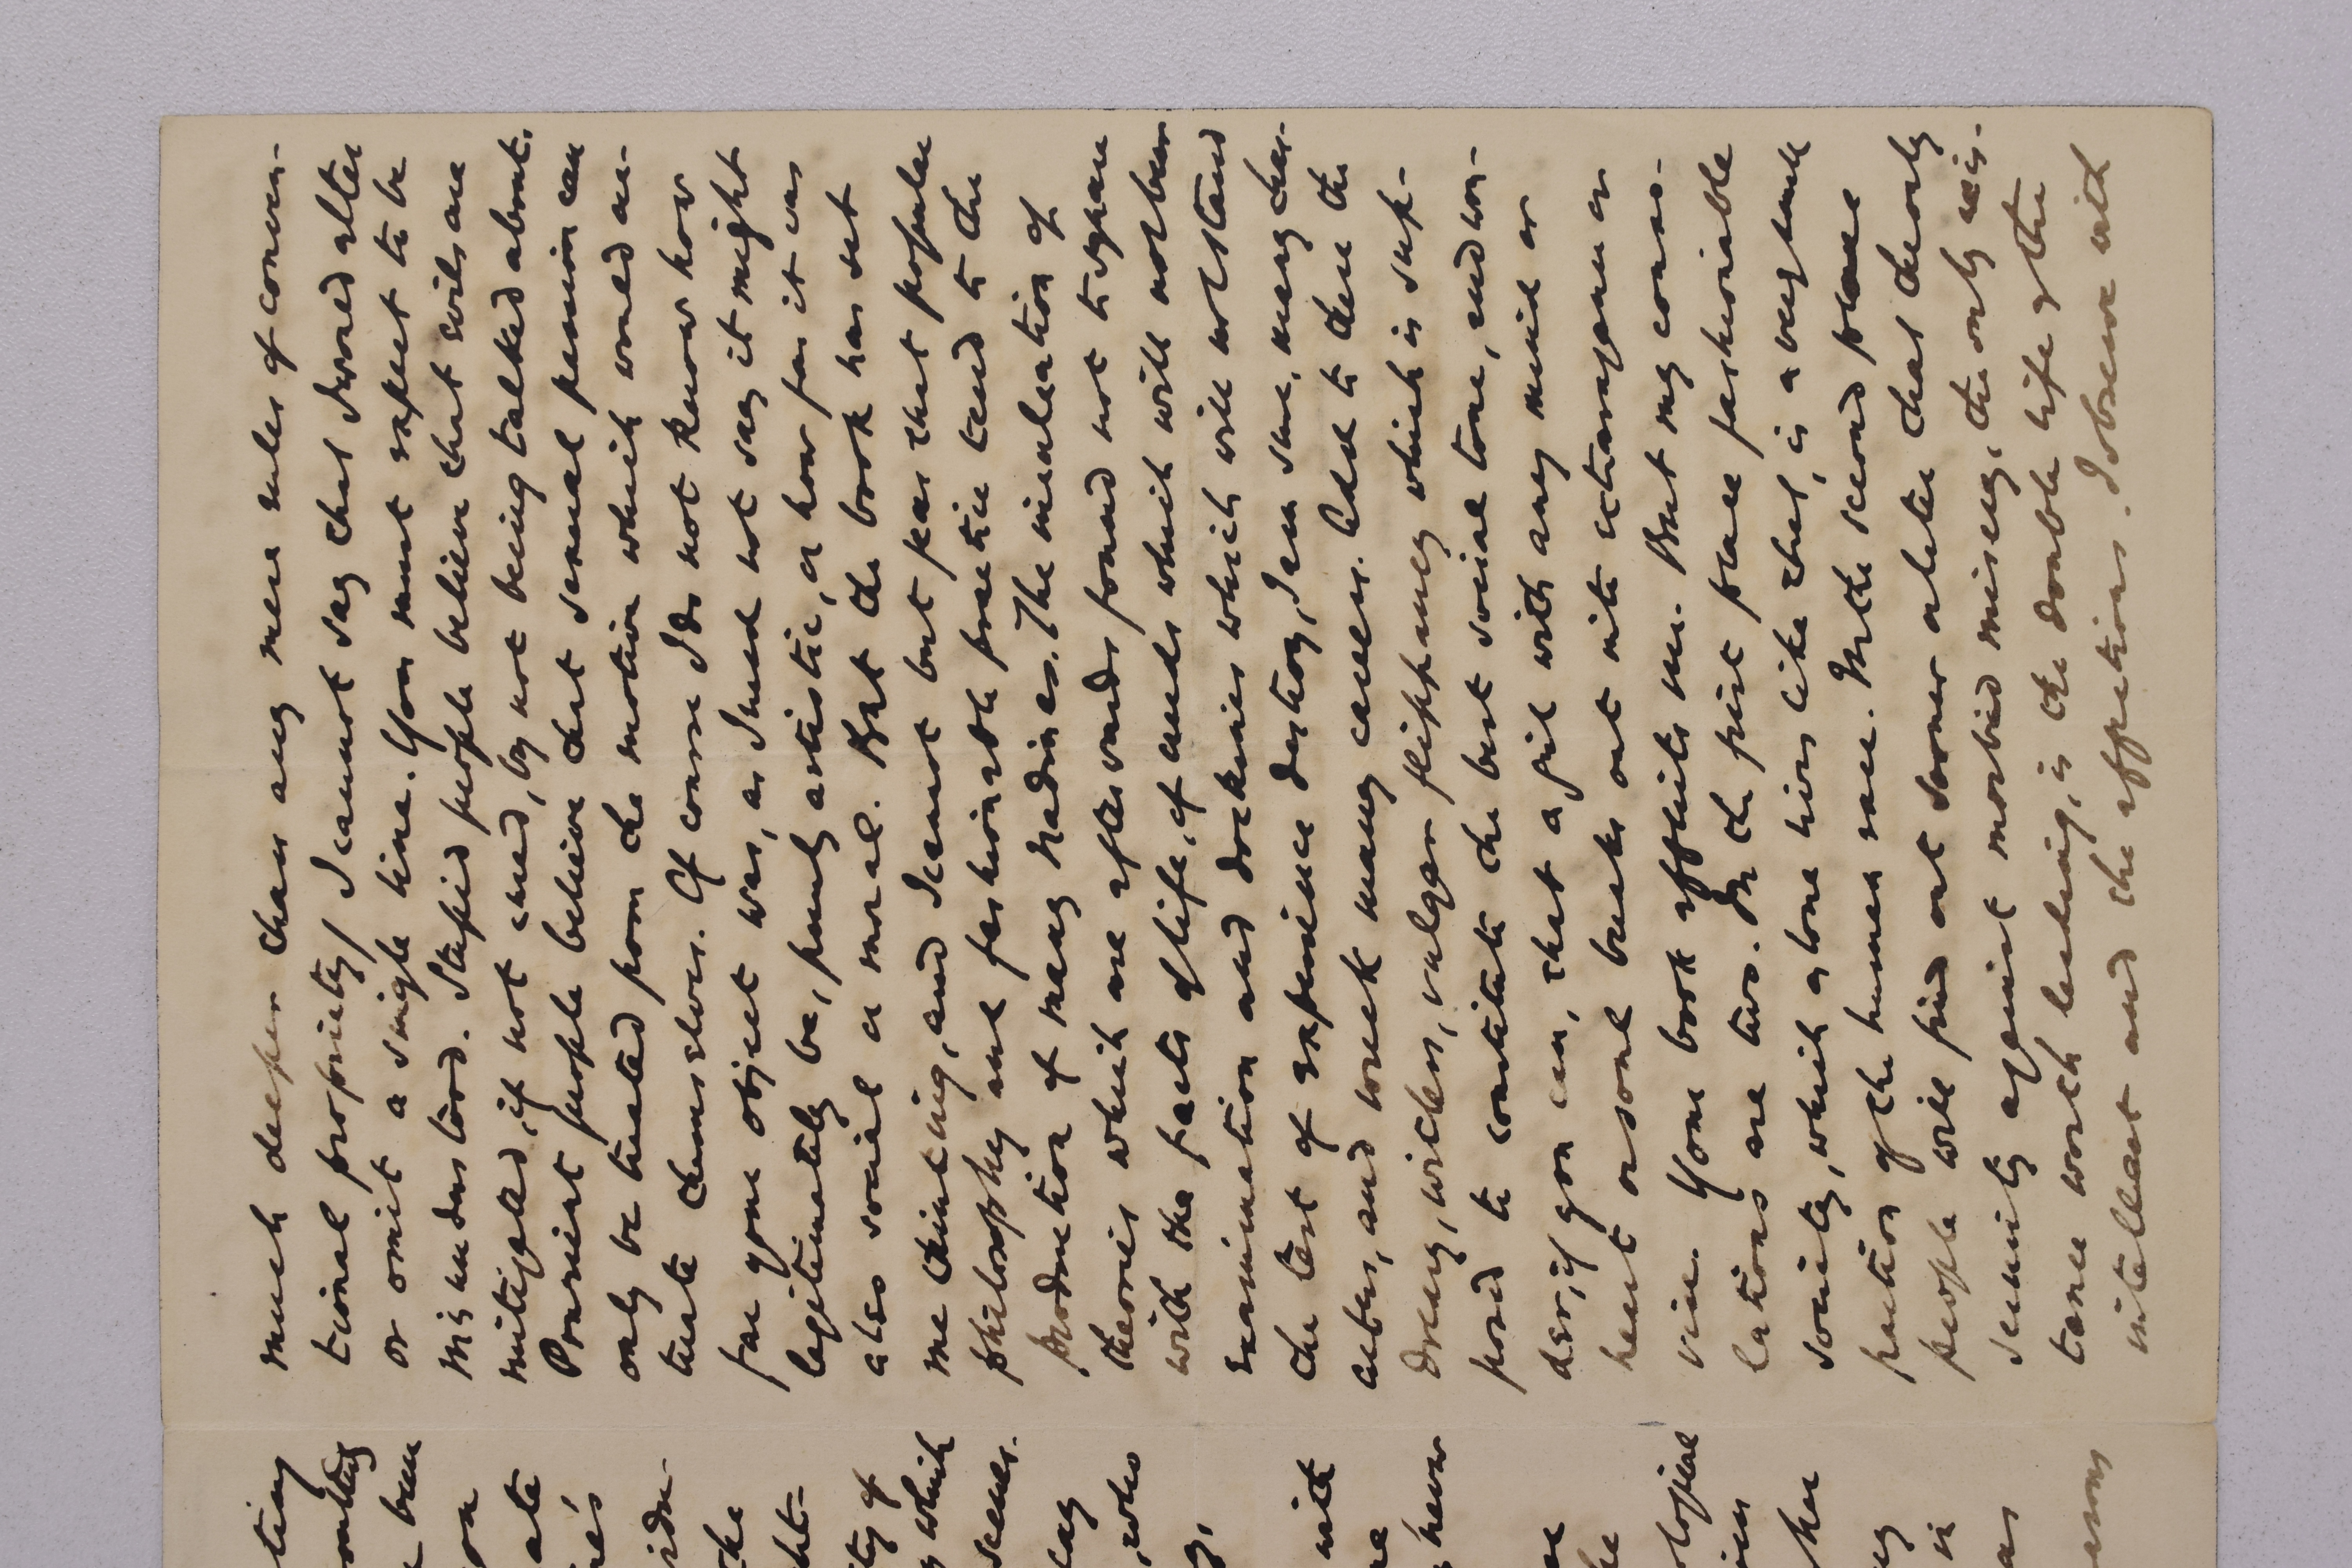 much deeper than any mere rules of conven-
tional propriety / I cannot say that I would alter
or omit a single line. You must expect to be
misunderstood. Stupid people believe that evils are
mitigated, if not cured, by not being talked about.
Prurient people believe that sexual passion can
only be treated from the motive which would ac-
tuate themselves. Of course I do not know how
far your object was, as I need not say it might
legitimately be, purely artistic, or how far it was
also social or moral. But the book has set
me thinking, and I cannot but fear that popular
philosophy and fashionable practice tend to the
production of many Nadines. The inculcation of
theories which are afterwards found not to square
with the facts of life, of creeds which will not bear
examination and doctrines which will not stand
the test of experience destroy, I am sure, many char-
acters, and wreck many careers. Add to them the
dreary, witless, vulgar flippancy which is sup-
posed to constitute the best social tone, and won-
der, if you can, that a girl with any mind or
heart or soul breaks out into extravagance or
vice. Your book affects me. But my conso-
lations are two. In the first place fashionable
society, which alone lives like that, is a very small
portion of the human race. In the second place
people will find out sooner or later that the only
security against morbid misery, the only exis-
tence worth leading, is the double life of the
intellect and the affections. I observe with